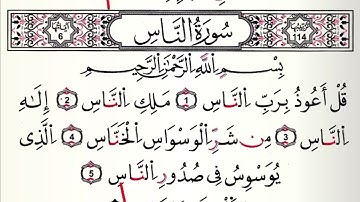 سُورَةُ النَّاسِ
114
6
بِسْمِ اللَّهِ الرَّحْمَٰنِ الرَّحِيمِ
قُلْ أَعُوذُ بِرَبِّ النَّاسِ 1 مَلِكِ النَّاسِ 2 إِلَٰهِ
النَّاسِ 3 مِن شَرِّ الْوَسْوَاسِ الْخَنَّاسِ 4 الَّذِي
يُوَسْوِسُ فِي صُدُورِ النَّاسِ 5